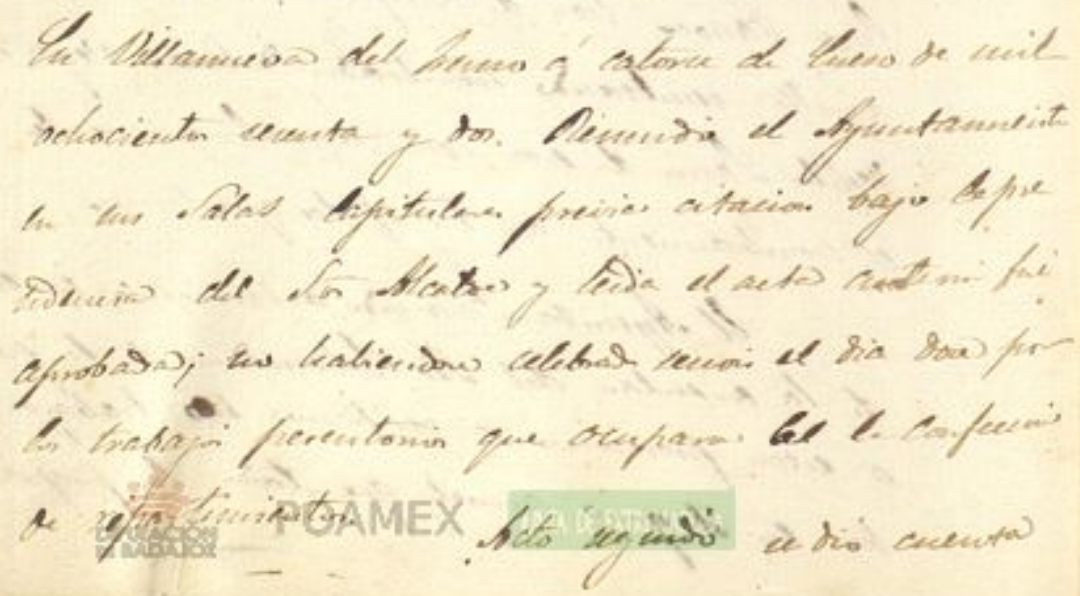 En Villanueva del Fresno á catorce de Enero de mil
ochocientos sesenta y dos. Reunido el Ayuntamiento
en sus Salas Capitulares previa citacion bajo la pre
sidencia del Sor Alcalde y leida el acta anterior fué
aprobada; no habiendose celebrado sesion el dia doce por
los trabajos perentorios que ocupara la confeccion
de repartimientos
POAMEX
DIPUTACIÓN
DE BADAJOZ
Acto seguido se dio cuenta